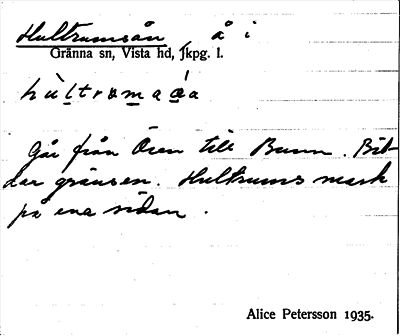 Hultrumsån, å i
Gränna sn, Vista hd, Jkpg. l.
Går från Ören till Bunn. Bil-
dar gränsen. Hultrums mark
på ena sidan.
Alice Petersson 1935.